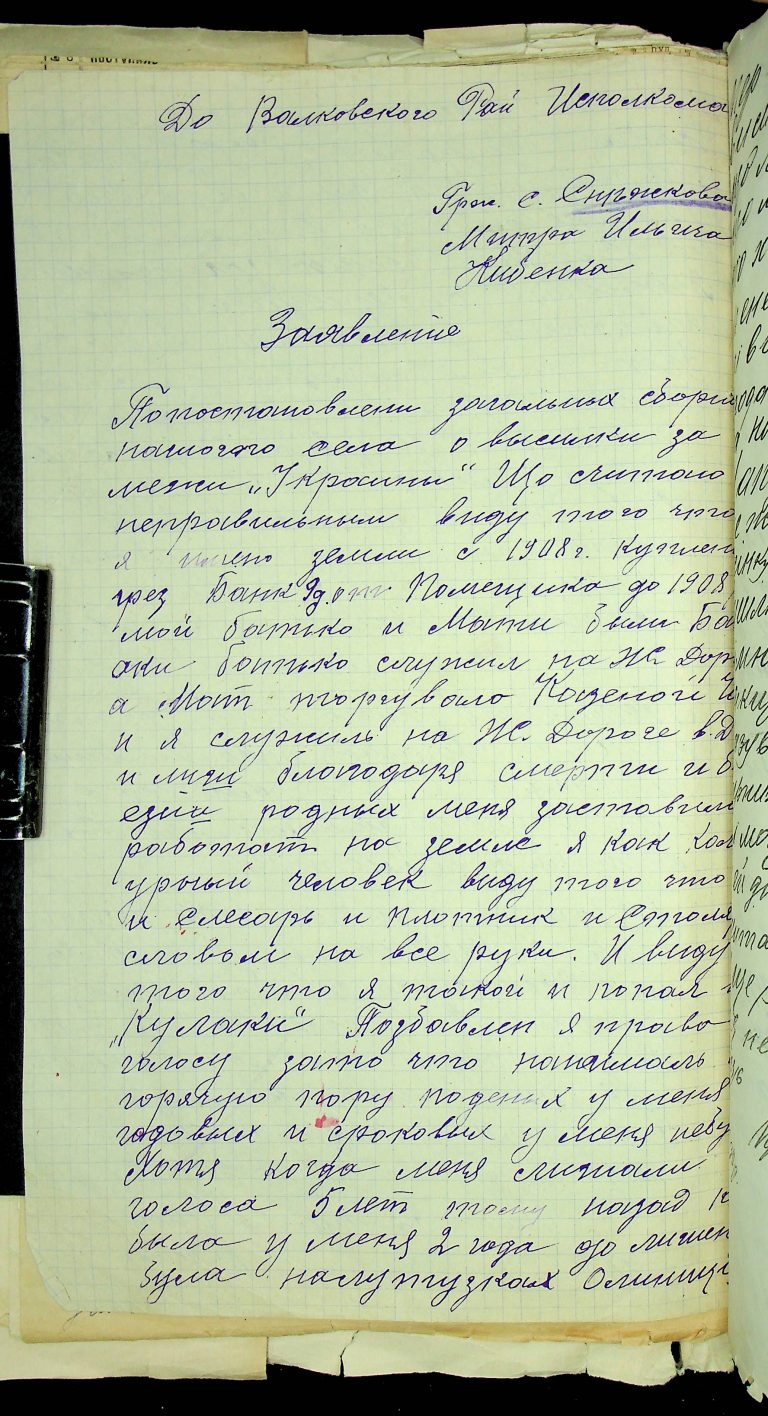 До Валковского Рай Исполкома
Грж. с. Снѣжкова
Митра Ильича
Кибенка
Заявление
Попостановлени загальных сборив
нашого села о высилки за
межи „Украины" Що считаю
неправильным виду того что
я имею земли с 1908г. купленн
чрез Банк 9д. от Помещика до 1908
мой батько и Мати были Ба
аки батько служил на Ж. Дор
а Мат торгувала Казеной
и я служиль на Ж. Дороге в. Д
и лиш благодаря смерти и б
езии родных меня заставило
работат на земле я как кол
урный человек виду того что
и слесарь и плотник и Столя
словом на все руки. И виду
того что я такой и попал
„Кулаки" Позбавлен я право
голосу зато что нанімаль
горячую пору поденых у меня
годовых и сроковых у меня небу
Хотя когда меня слишали
голоса 5 лет тому назад
была у меня 2 года до лишен
була наслутузках